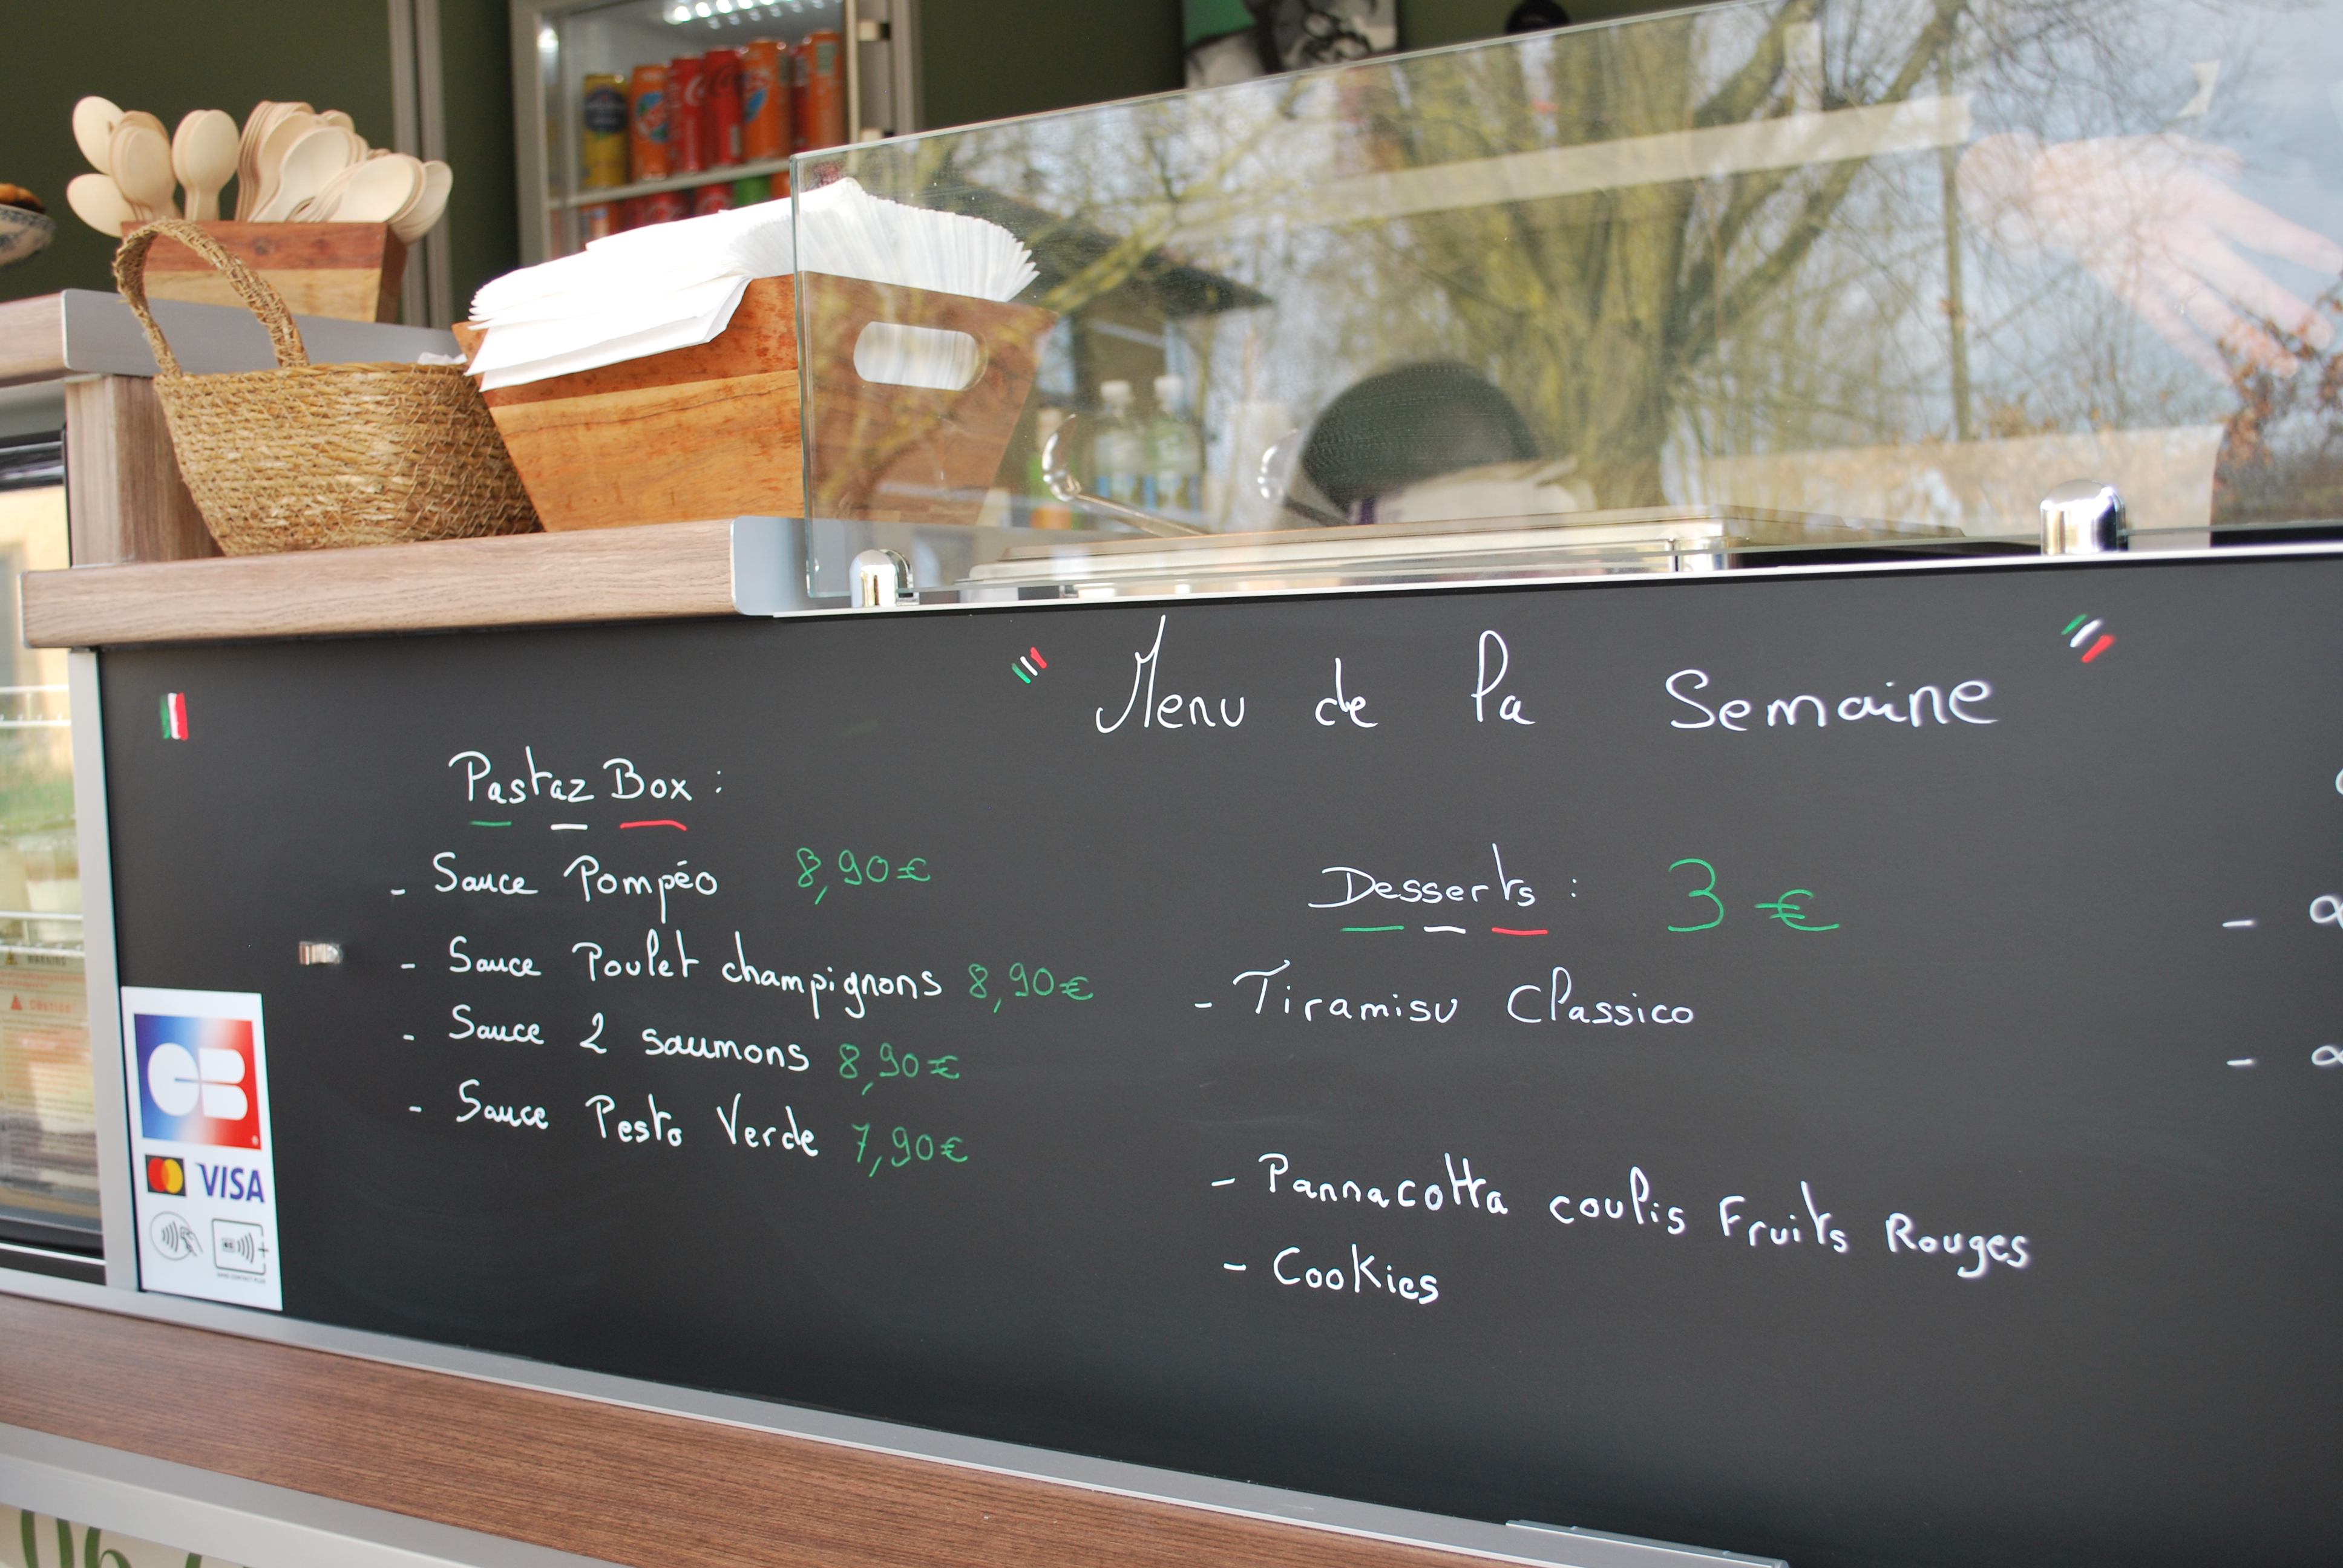 Menu de la Semaine
Pastaz Box :
- Sauce Pompéo 8,90€
- Sauce Poulet champignons 8,90€
- Sauce 2 saumons 8,90€
- Sauce Pesto Verde 7,90€
Desserts : 3€
- Tiramisu Classico
- Pannacotta coulis Fruits Rouges
- Cookies
CB
VISA
WARNING
06